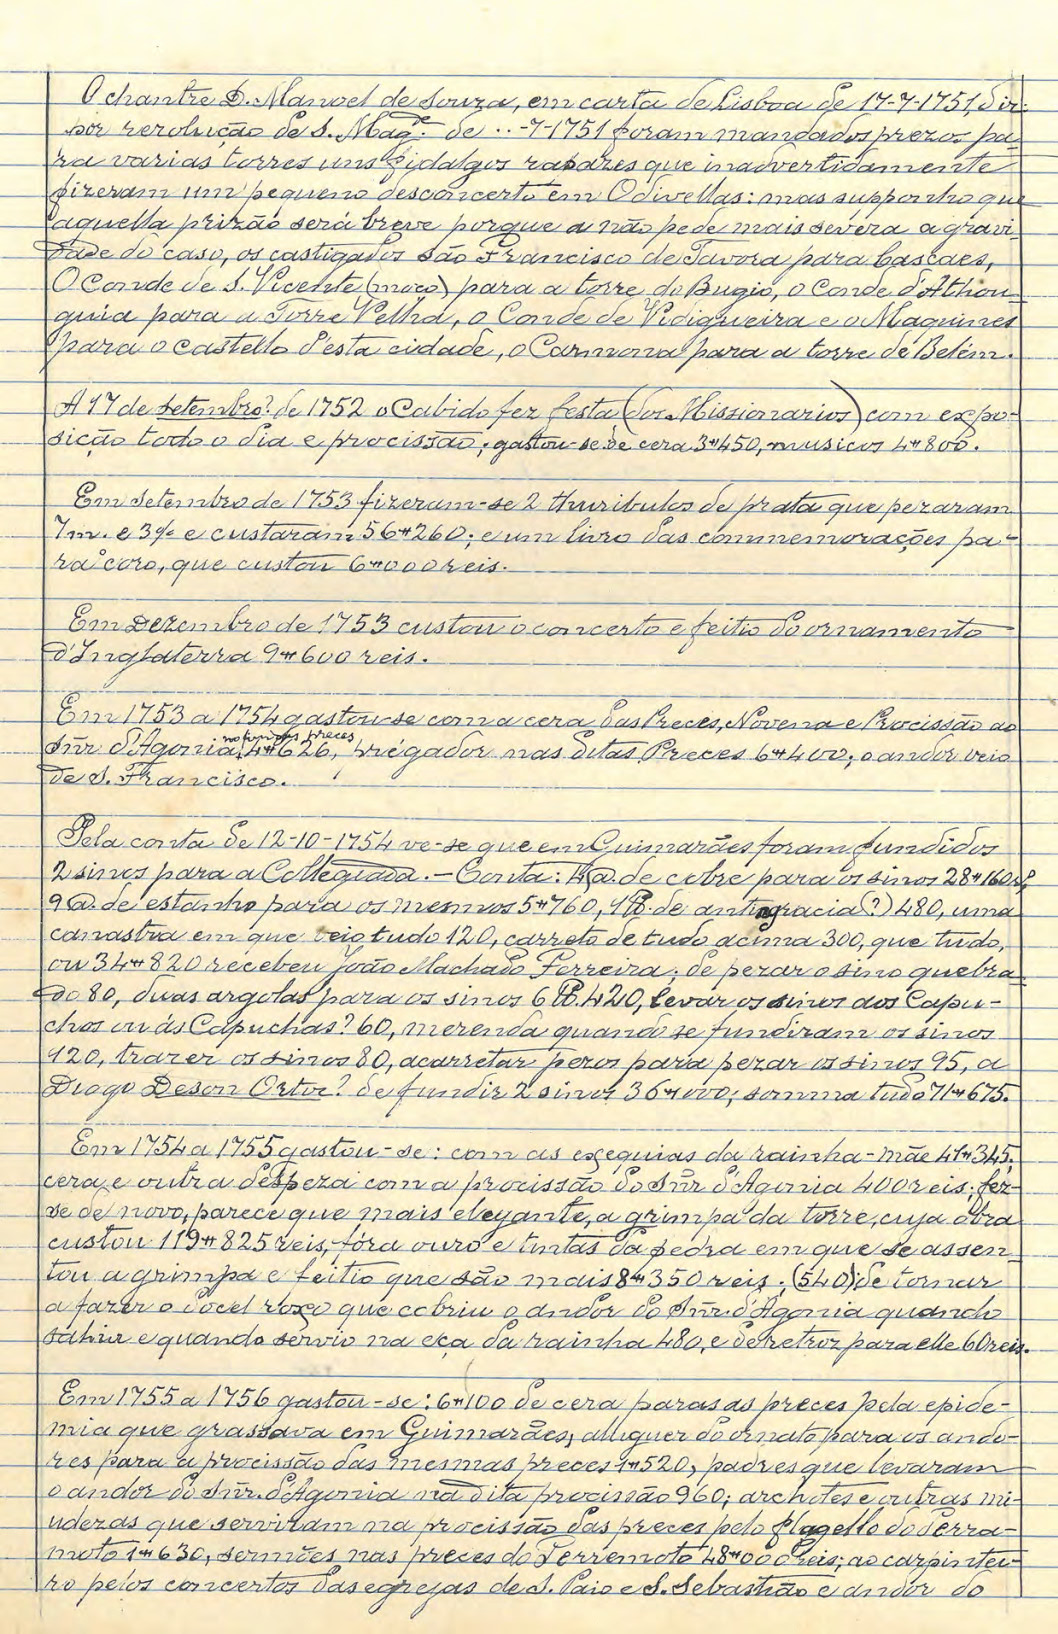 O chantre D. Manoel de Souza, em carta de Lisboa de 17-7-1751, diz:
por rezolução de S. Mag.de de ..-7-1751 foram mandados prezos pa-
ra varias torres uns fidalgos rapazes que inadvertidamente
fizeram um pequeno desconcerto em Odivellas: mas supponho que
aquella prizão será breve porque a não pede mais severa a gravi-
dade do caso, os castigados são Francisco de Tavora para Cascaes,
O Conde de S. Vicente (moço) para a torre do Bugio, o Conde d'Athou-
guia para a Torre Velha, o Conde de Vidigueira e o Maquines
para o castello d'esta cidade, o Carmona para a torre de Belém.
A 17 de setembro? de 1752 o Cabido fez festa (dos Missionarios) com expo-
sição todo o dia e procissão; gastou-se de cera 3#450, musicos 4#800.
Em Setembro de 1753 fizeram-se 2 thuribulos de prata que pezaram
7m. e 3 e custaram 56#260; e um livro das commemorações pa-
ra o coro, que custou 6#000 reis.
Em Dezembro de 1753 custou o concerto e feitio do ornamento
d'Inglaterra 9#600 reis.
Em 1753 a 1754 gastou-se com a cera das Preces, Novena e Procissão ao
Snr. d'Agonia, no fim das preces, 4#626, prégador nas ditas Preces 6#400; o andor veio
de S. Francisco.
Pela conta de 12-10-1754 ve-se que em Guimarães foram fundidos
2 sinos para a Collegiada. — Conta: 4 @. de cobre para os sinos 28#160 rs,
9 @. de estanho para os mesmos 5#760, 1 lb. de antigracia (?) 480, uma
canastra em que veio tudo 120, carreto de tudo acima 300, que tudo,
ou 34#820 recebeu João Machado Ferreira; de pezar o sino quebra-
do 80, duas argolas para os sinos 6 lb. 420, levar os sinos aos Capu-
chos ou ás Capuchas? 60, merenda quando se fundiram os sinos
120, trazer os sinos 80, acarretar pezos para pezar os sinos 95, a
Diogo Deson Ortor? de fundir 2 sinos 36#000; somma tudo 71#675.
Em 1754 a 1755 gastou-se: com as exequias da rainha-mãe 41#345;
cera e outra despeza com a procissão do Snr. d'Agonia 400 reis; fez-
se de novo, parece que mais elegante, a grimpa da torre, cuja obra
custou 119#825 reis, fóra ouro e tintas da pedra em que se assen-
tou a grimpa e feitio que são mais 8#350 reis; (540) de tornar
a fazer o docel roxo que cobriu o andor do Snr. d'Agonia quando
sahiu e quando serviu na eça da rainha 480, e de retroz para elle 60 reis.
Em 1755 a 1756 gastou-se: 6#100 de cera paras as preces pela epide-
mia que grassava em Guimarães, alluguer do ornato para os ando-
res para a procissão das mesmas preces 1#520, padres que levaram
o andor do Snr. d'Agonia na dita procissão 960; archotes e outras mi-
udezas que serviram na procissão das preces pelo flagello do Terra-
moto 1#630, sermões nas preces do Terremoto 48#000 reis; ao carpintei-
ro pelos concertos das egrejas de S. Paio e S. Sebastião e andor do